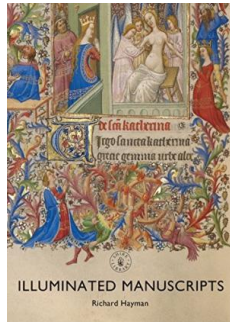 de scā katherina
Virgo sancta katherina
grecie gemma urbe alex
SHIRE
LIBRARY
ILLUMINATED MANUSCRIPTS
Richard Hayman